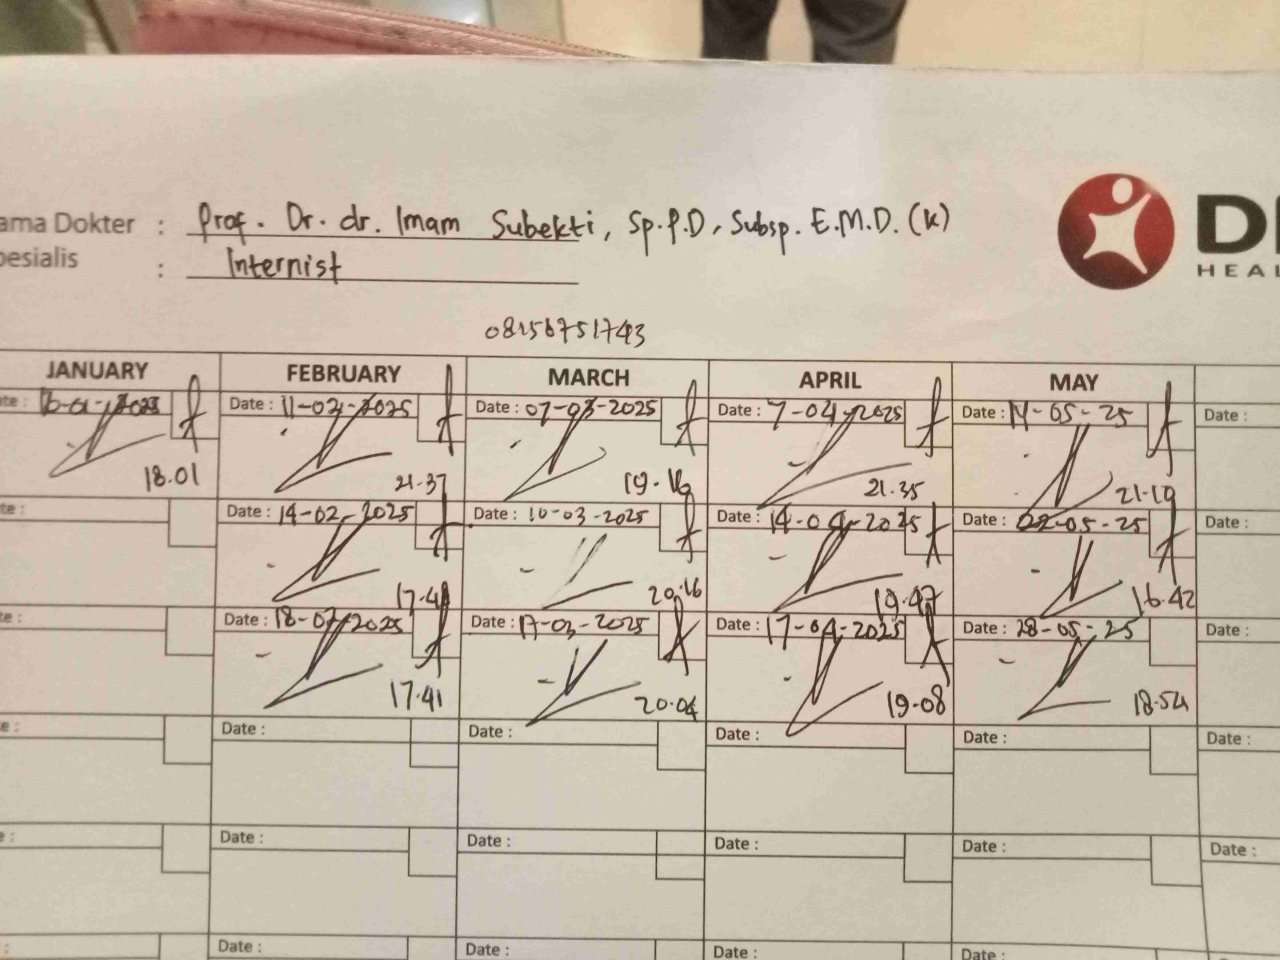 ama Dokter : Prof. Dr. dr. Imam Subekti, Sp.P.D, Subsp. E.M.D. (K)
pesialis : Internist
HEAL
081567751743
JANUARY FEBRUARY MARCH APRIL MAY
Date : 11-02-2025 Date : 07-03-2025 Date : 7-04-2025 Date : 14-05-25 Date :
18.01 21.37 19.16 21.35 21.19
Date : 14-02-2025 Date : 10-03-2025 Date : 14-04-2025 Date : 22-05-25 Date :
20.16 19.47 16.42
Date : 18-02-2025 Date : 17-03-2025 Date : 17-04-2025 Date : 28-05-25 Date :
17.41 20.04 19.08 18.54
Date : Date : Date : Date : Date :
Date : Date : Date : Date : Date :
Date : Date : Date : Date :